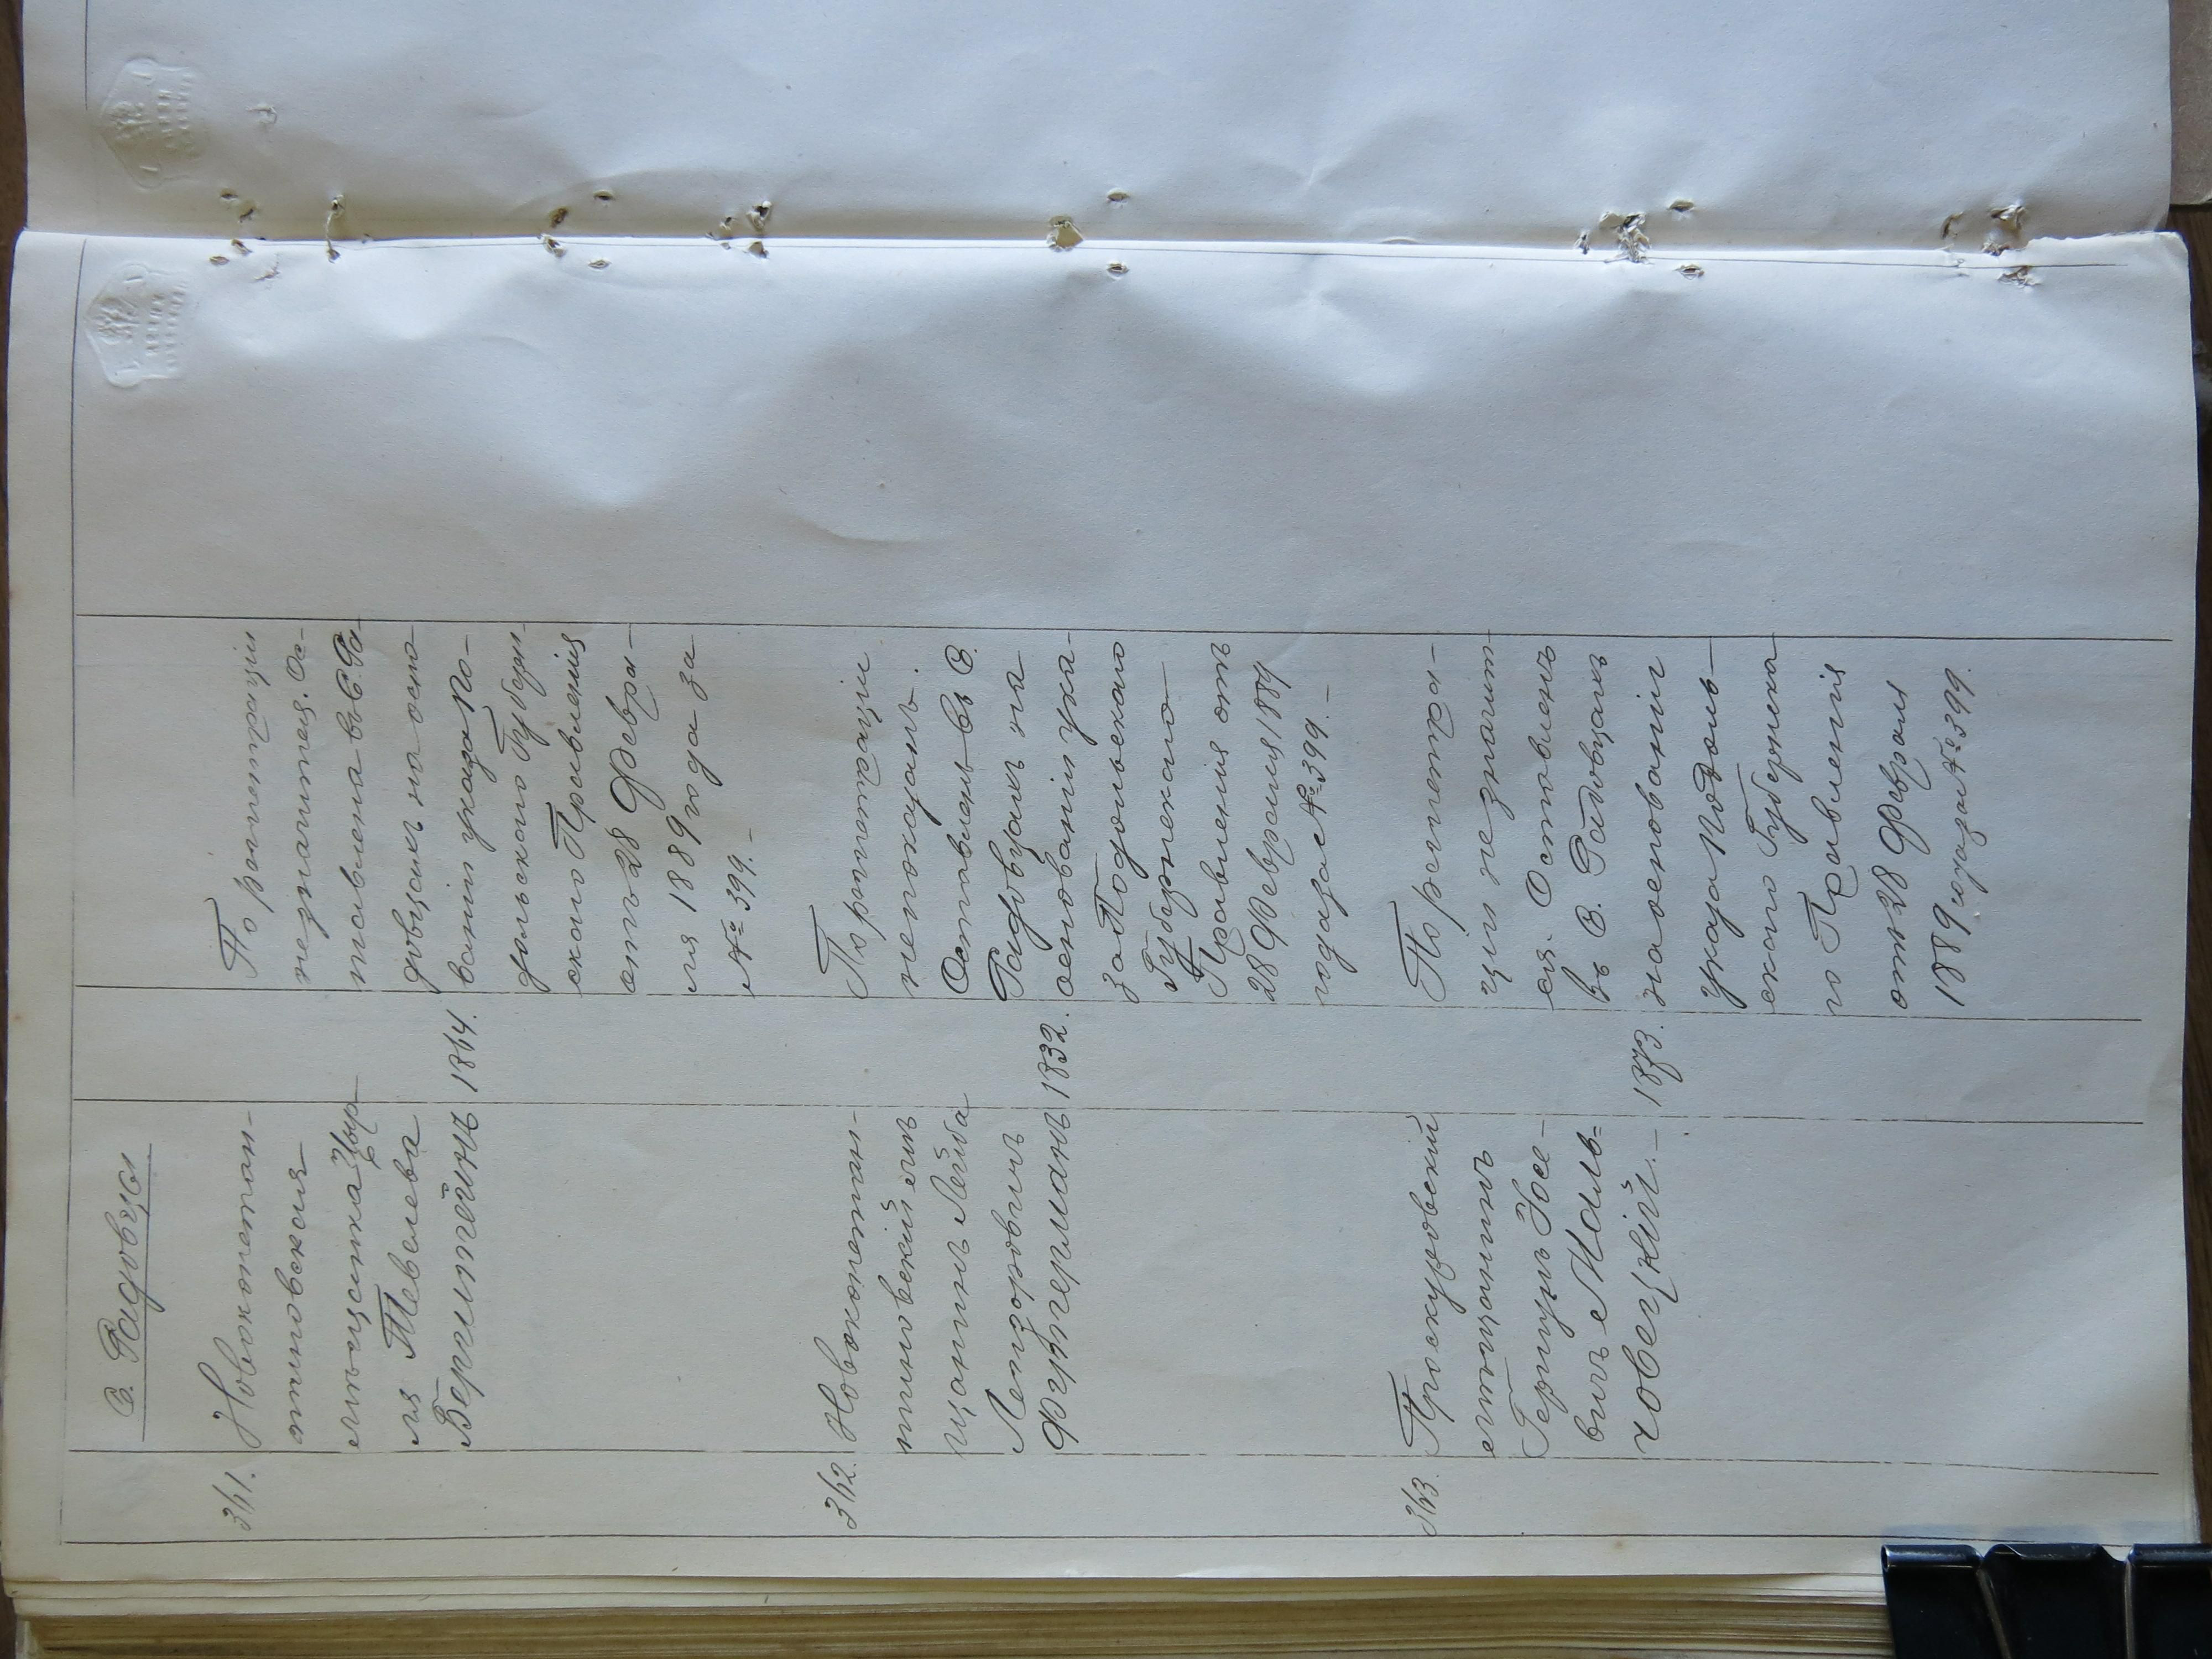 С. Радовцы
341.
Новоконстан-
тиновская
мѣщанка Цыр
ля Тевелева
Бернштейнъ
1864.
По регистраціи
незначится. Ос-
тавлена въ С. Ра-
довцахъ на осно
ваніи указа По-
дольскаго Губерн-
скаго Правленія
отъ 28 Февра-
ля 1889 года за
№ 399.-
342.
Новоконстан-
тиновскій мѣ
щанинъ Лейба
Лейзоровичъ
Фингерманъ
1832.
По регистраціи
непоказанъ.
Оставленъ въ С.
Радовцахъ на
основаніи ука-
за Подольскаго
Губернскаго
Правленія отъ
28 Февраля 1889
года за № 399.-
343.
Проскуровскій
мѣщанинъ
Гершунъ Іосе-
вичъ Маль-
човецкій.-
1873.
По регистра-
ціи не значит-
ся. Оставленъ
въ С. Радовцахъ
на основаніи
указа Подоль-
скаго Губернска
го Правленія
отъ 28 Февраля
1889 года за № 399.